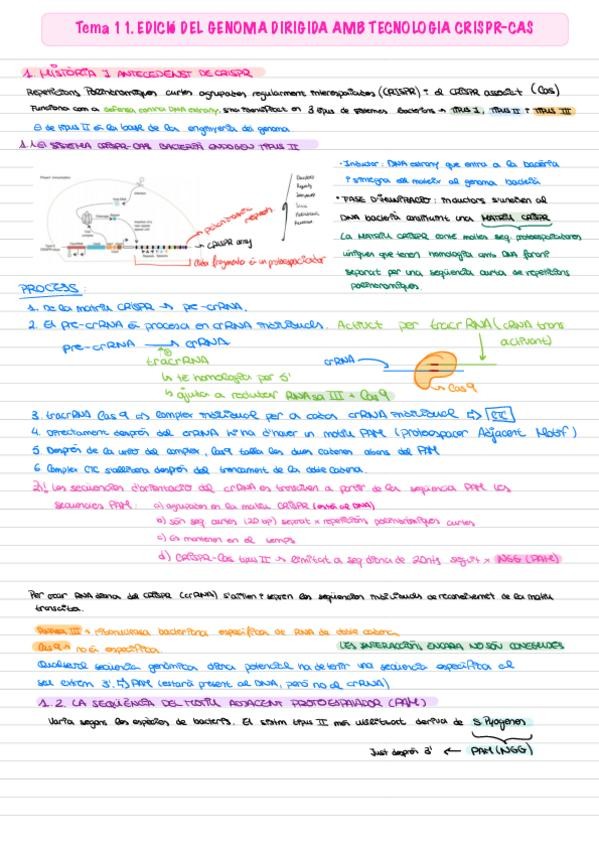 Tema 11. EDICIÓ DEL GENOMA DIRIGIDA AMB TECNOLOGIA CRISPR-CAS
1. HISTÒRIA I ANTECEDENST DE CRISPR
Repeticions Palindròmiques curtes agrupades regularment interespaiades (CRISPR) i el CRISPR associat (Cas)
Funciona com a defensa contra DNA estrany, s'ha identificat en 3 tipus de sistemes bacterians → TIPUS I, TIPUS II i TIPUS III
de tipus II és la base de la enginyeria de genoma
1.1. El SISTEMA CRISPR-CAS BACTERIÀ ENDOGEN TIPUS II
· Inductor: DNA estrany que entra a la bactèria
i s'integra al genoma bacterià
· FASE D'IMMUNITZACIÓ: inductors s'uneixen al
DNA bacterià constituint una MATRIU CRISPR
La MATRIU CRISPR conté moltes seq. protoespaiadores
úniques que tenen homologia amb DNA forani
separat per una seqüència curta de repeticions
palindròmiques.
CRISPR array
cada fragment és un protoespaiador
PROCÉS:
1. De la matriu CRISPR → pre-crRNA.
2. El pre-crRNA es processa en crRNA individuals. Activat per tracrRNA (crRNA trans
activant)
pre-crRNA → crRNA
tracrRNA
crRNA
↳ té homologia per 5'
↳ Cas9
↳ ajuda a reclutar RNAsa III + Cas9
3. tracrRNA Cas9 complex individual per a cada crRNA individual ⇒ CTC
4. Directament després del crRNA hi ha d'haver un motiu PAM (Protoespacer Adjacent Motif)
5. Després de la unió del complex, Cas9 talla les dues cadenes abans del PAM
6. Complex CTC s'allibera després del trencament de la doble cadena.
Les seqüències d'orientació del crRNA es transcriuen a partir de la seqüència PAM les
seqüències PAM: a) agrupades en la matriu CRISPR (està al DNA)
b) són seq curtes (20 bp) separat x repeticions palindròmiques curtes
c) es mantenen en el temps
d) CRISPR-Cas tipus II → limitat a seq diana de 20nts seguit x NGG (PAM)
Per crear RNA diana del CRISPR (crRNA) s'alinien i separen les seqüències individuals de reconeixement de la matriu
transcrita.
RNAsa III → ribonucleasa bacteriana específica de RNA de doble cadena
Cas9 → no és específica.
LES INTERACCIONS ENCARA NO SÓN CONEGUDES
Qualsevol seqüència genòmica diana potencial ha de tenir una seqüència específica al
seu extrem 3'. ⇒ PAM (estarà present al DNA, però no al crRNA)
1.2. LA SEQÜÈNCIA DEL MOTIU ADJACENT PROTOESPAIADOR (PAM)
Varia segons les espècies de bacteris. El sistem tipus II més utilitzat deriva de S. Pyogenes
Just després 3' ← PAM (NGG)